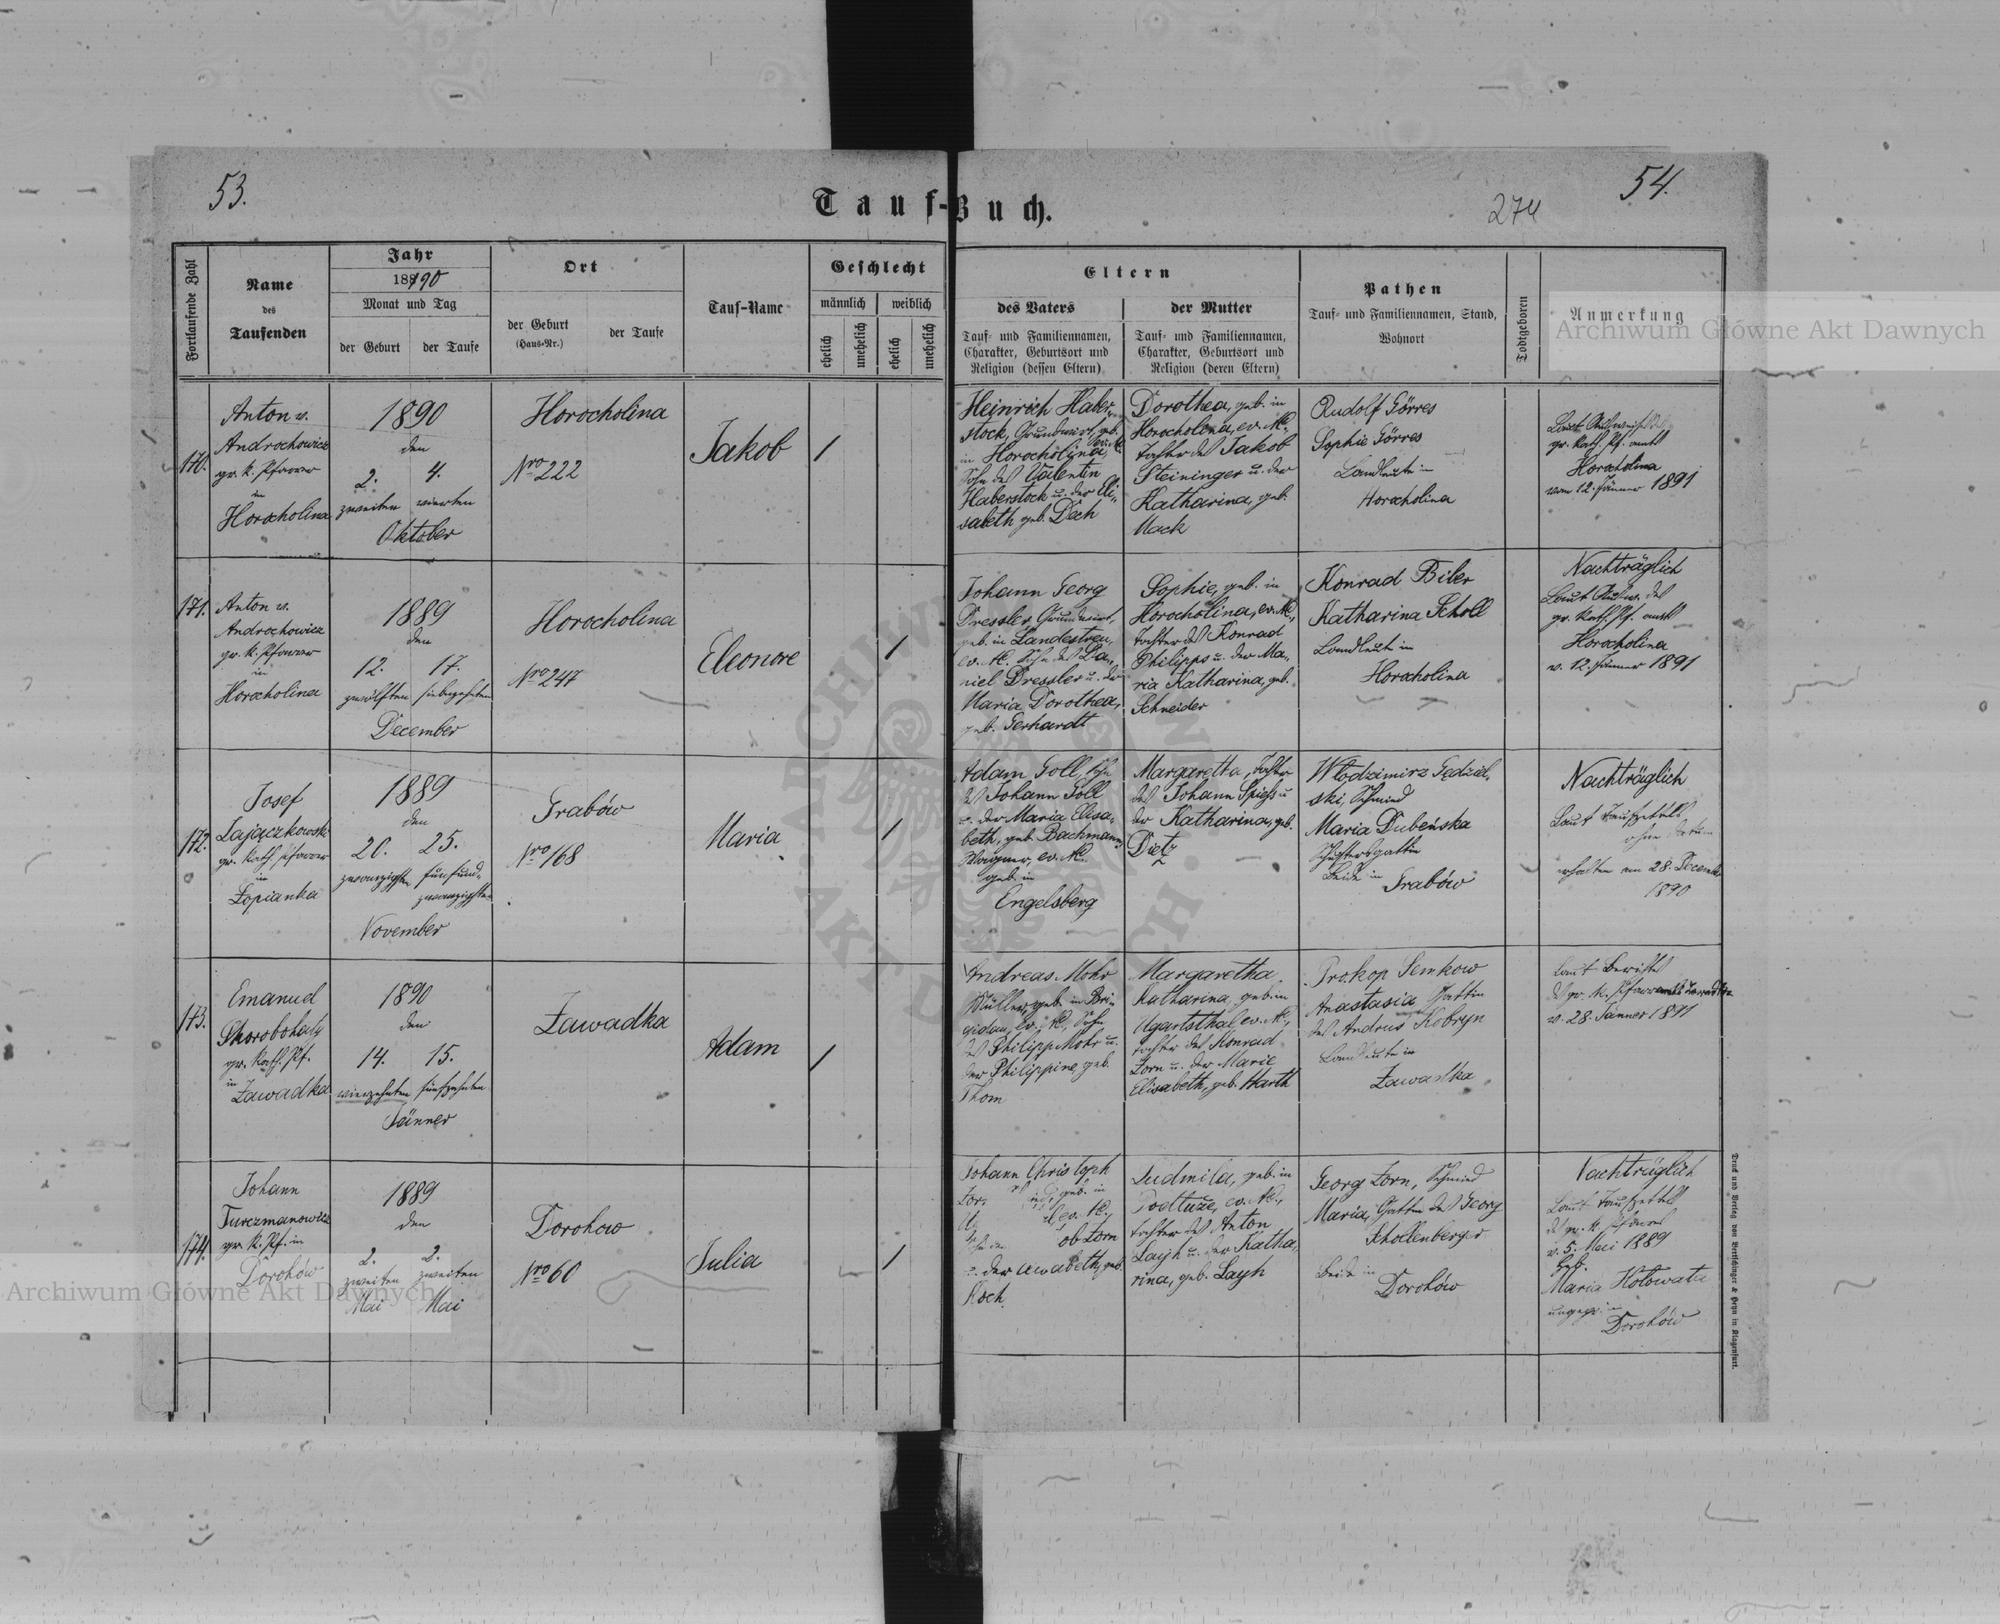 53.
54.
274
Tauf-Buch.
Fortlaufende Zahl
Name
des
Taufenden
Jahr
1890
Monat und Tag
der Geburt
der Taufe
Ort
der Geburt
(Haus-Nr.)
der Taufe
Tauf-Name
Geschlecht
männlich
weiblich
ehelich
unehelich
ehelich
unehelich
Eltern
des Vaters
Tauf- und Familiennamen,
Charakter, Geburtsort und
Religion (dessen Eltern)
der Mutter
Tauf- und Familiennamen,
Charakter, Geburtsort und
Religion (deren Eltern)
Pathen
Tauf- und Familiennamen, Stand,
Wohnort
Todtgeboren
Anmerkung
Archiwum Główne Akt Dawnych
170.
Anton v.
Androchowicz
gr. k. Pfarrer
in
Horocholina
1890
den
2. 4.
zweiten vierten
Oktober
Horocholina
Nro 222
Jakob
/
Heinrich Haber-
stock, Grundwirt, geb.
in Horocholina, ev. A. C.
Sohn des Valentin
Haberstock u. der Eli-
sabeth geb. Dech
Dorothea, geb. in
Horocholina, ev. A. C.,
Tochter des Jakob
Steininger u. der
Katharina, geb.
Mack
Rudolf Görres
Sophie Görres
Landleute in
Horocholina
Laut
gr. kath. Pf. amts
Horocholina
vom 12. Jänner 1891
171.
Anton v.
Androchowicz
gr. k. Pfarrer
in
Horocholina
1889
den
12. 17.
zwölften siebzehnten
December
Horocholina
Nro 247
Eleonore
/
Johann Georg
Dressler, Grundwirt,
geb. in Landestreu,
ev. A. C. Sohn des Da-
niel Dressler u. der
Maria Dorothea,
geb. Gerhardt
Sophie, geb. in
Horocholina, ev. A. C.,
Tochter des Konrad
Philipps u. der Ma-
ria Katharina, geb.
Schneider
Konrad Biler
Katharina Scholl
Landleute in
Horocholina
Nachträglich
Laut des
gr. kath. Pf. amts
Horocholina
v. 12. Jänner 1891
172.
Josef
Łajączkowski
gr. kath. Pfarrer
in
Łopianka
1889
den
20. 25.
zwanzigsten fünfund-
zwanzigsten
November
Grabów
Nro 168
Maria
/
Adam Goll, Sohn
des Johann Goll
u. der Maria Elisa-
beth, geb. Bachmann,
Wagner, ev. A. C.
geb. in
Engelsberg
Margaretha, Tochter
des Johann Spiess u
der Katharina, geb.
Dietz
Włodzimirz Gędzal-
ski, Schmied
Maria Dubeńska
Schustersgattin
Beide in Grabów
Nachträglich
Laut Taufzettels
ohne Datum
erhalten am 28. December
1890
173.
Emanuel
Skorobohaty
gr. kath. Pf.
in
Zawadka
1890
den
14. 15.
vierzehnten fünfzehnten
Jänner
Zawadka
Adam
/
Andreas Mohr
Müller, geb. in Bri-
gidau, ev. A. C., Sohn
des Philipp Mohr u.
der Philippine geb.
Thom
Margaretha
Katharina, geb. in
Ugartsthal ev. A. C.,
Tochter des Konrad
Zorn u. der Marie
Elisabeth, geb. Harth
Prokop Semkow
Anastasia Gattin
des Andrus Kobryn
Landleute in
Zawadka
Laut Berichtes
des gr. k. Pfarramts Zawadka
v. 28. Jänner 1891
174.
Johann
Turczmanowicz
gr. k. Pf. in
Dorohów
1889
den
2. 2.
zweiten zweiten
Mai Mai
Dorohow
Nro 60
Julia
/
Johann Christoph
geb. in
ev. A. C.,
ob Zorn
u. der geb.
Koch
Ludmila, geb. in
Podłuże, ev. A. C.,
Tochter des Anton
Layh u. der Katha-
rina, geb. Layh
Georg Zorn, Schmied
Maria, Gattin des Georg
Schollenberger
Beide in
Dorohów
Nachträglich
Laut Taufzettels
des gr. k. Pfarrers
v. 5. Mai 1889
Heb.
Maria Hołowata
ungepr. in
Dorohów
Archiwum Główne Akt Dawnych
Druck und Verlag von Bertschinger & Heyn in Klagenfurt.